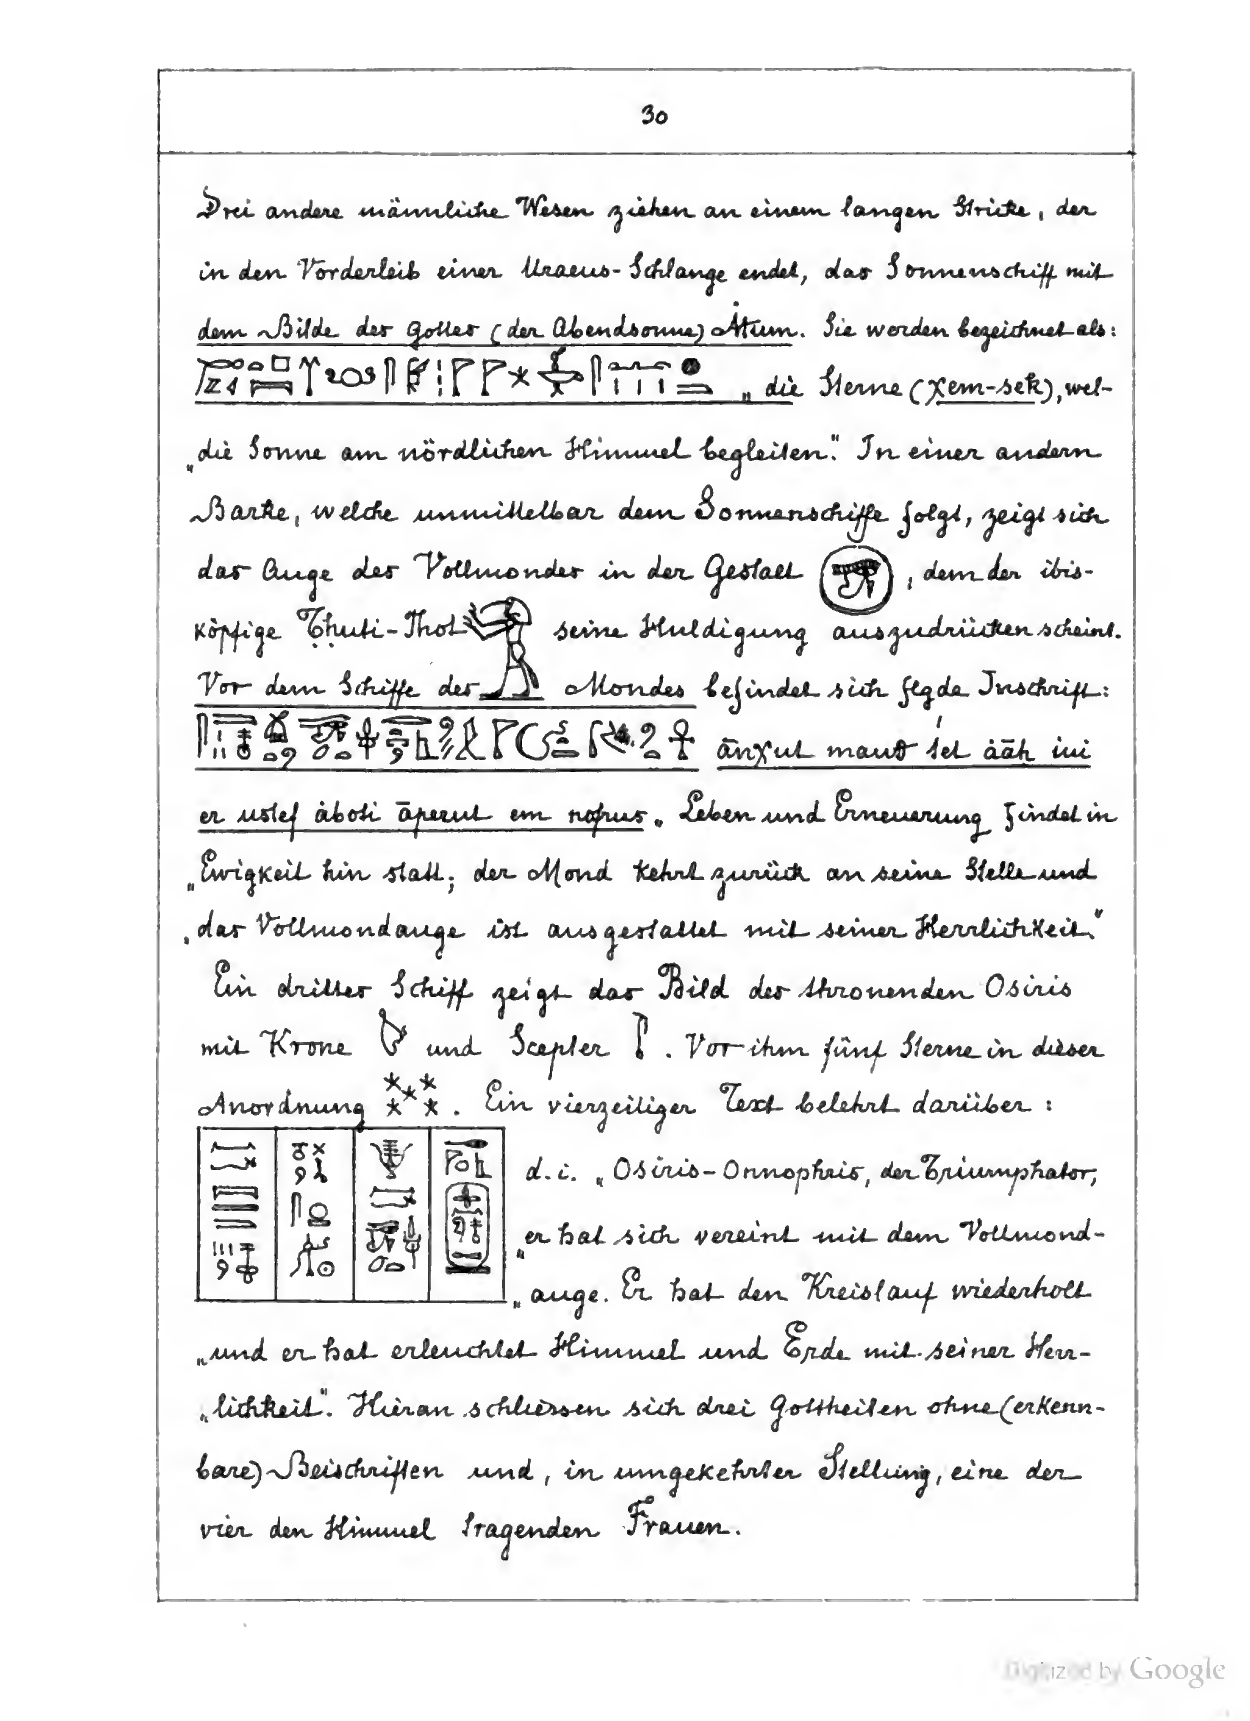 30
Drei andere männliche Wesen ziehen an einem langen Stricke, der
in den Vorderleib einer Uraeus-Schlange endet, das Sonnenschiff mit
dem Bilde des Gottes (der Abendsonne) Àtum. Sie werden bezeichnet als:
„die Sterne (χem-sek), wel-
„die Sonne am nördlichen Himmel begleiten." In einer andern
Barke, welche unmittelbar dem Sonnenschiffe folgt, zeigt sich
das Auge des Vollmondes in der Gestalt , dem der ibis-
köpfige Thuti-Thot seine Huldigung auszudrücken scheint.
Vor dem Schiffe des Mondes befindet sich flgde Inschrift:
ānχut maut set ȧāḥ iui
er ustef ȧboti āperut em nofrus. „Leben und Erneuerung findet in
„Ewigkeit hin statt; der Mond kehrt zurück an seine Stelle und
„das Vollmondauge ist ausgestattet mit seiner Herrlichkeit."
Ein drittes Schiff zeigt das Bild des thronenden Osiris
mit Krone und Scepter . Vor ihm fünf Sterne in dieser
Anordnung . Ein vierzeiliger Text belehrt darüber :
d. i. „Osiris-Onnophris, der Triumphator,
„er hat sich vereint mit dem Vollmond-
„auge. Er hat den Kreislauf wiederholt
„und er hat erleuchtet Himmel und Erde mit seiner Herr-
„lichkeit". Hieran schliessen sich drei Gottheiten ohne (erkenn-
bare) Beischriften und, in umgekehrter Stellung, eine der
vier den Himmel tragenden Frauen.
Digitized by Google